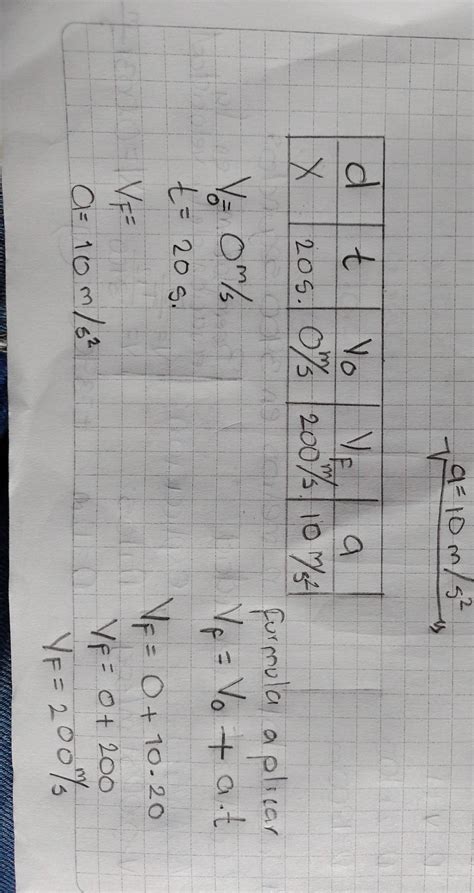 a = 10 m/s²
d t Vo VF a
X 20 s. 0 m/s 200 m/s. 10 m/s²
Vo= 0 m/s
t = 20 s.
VF=
a= 10 m/s²
formula aplicar
Vf = Vo + a.t
VF = 0 + 10.20
VF = 0 + 200
VF = 200 m/s